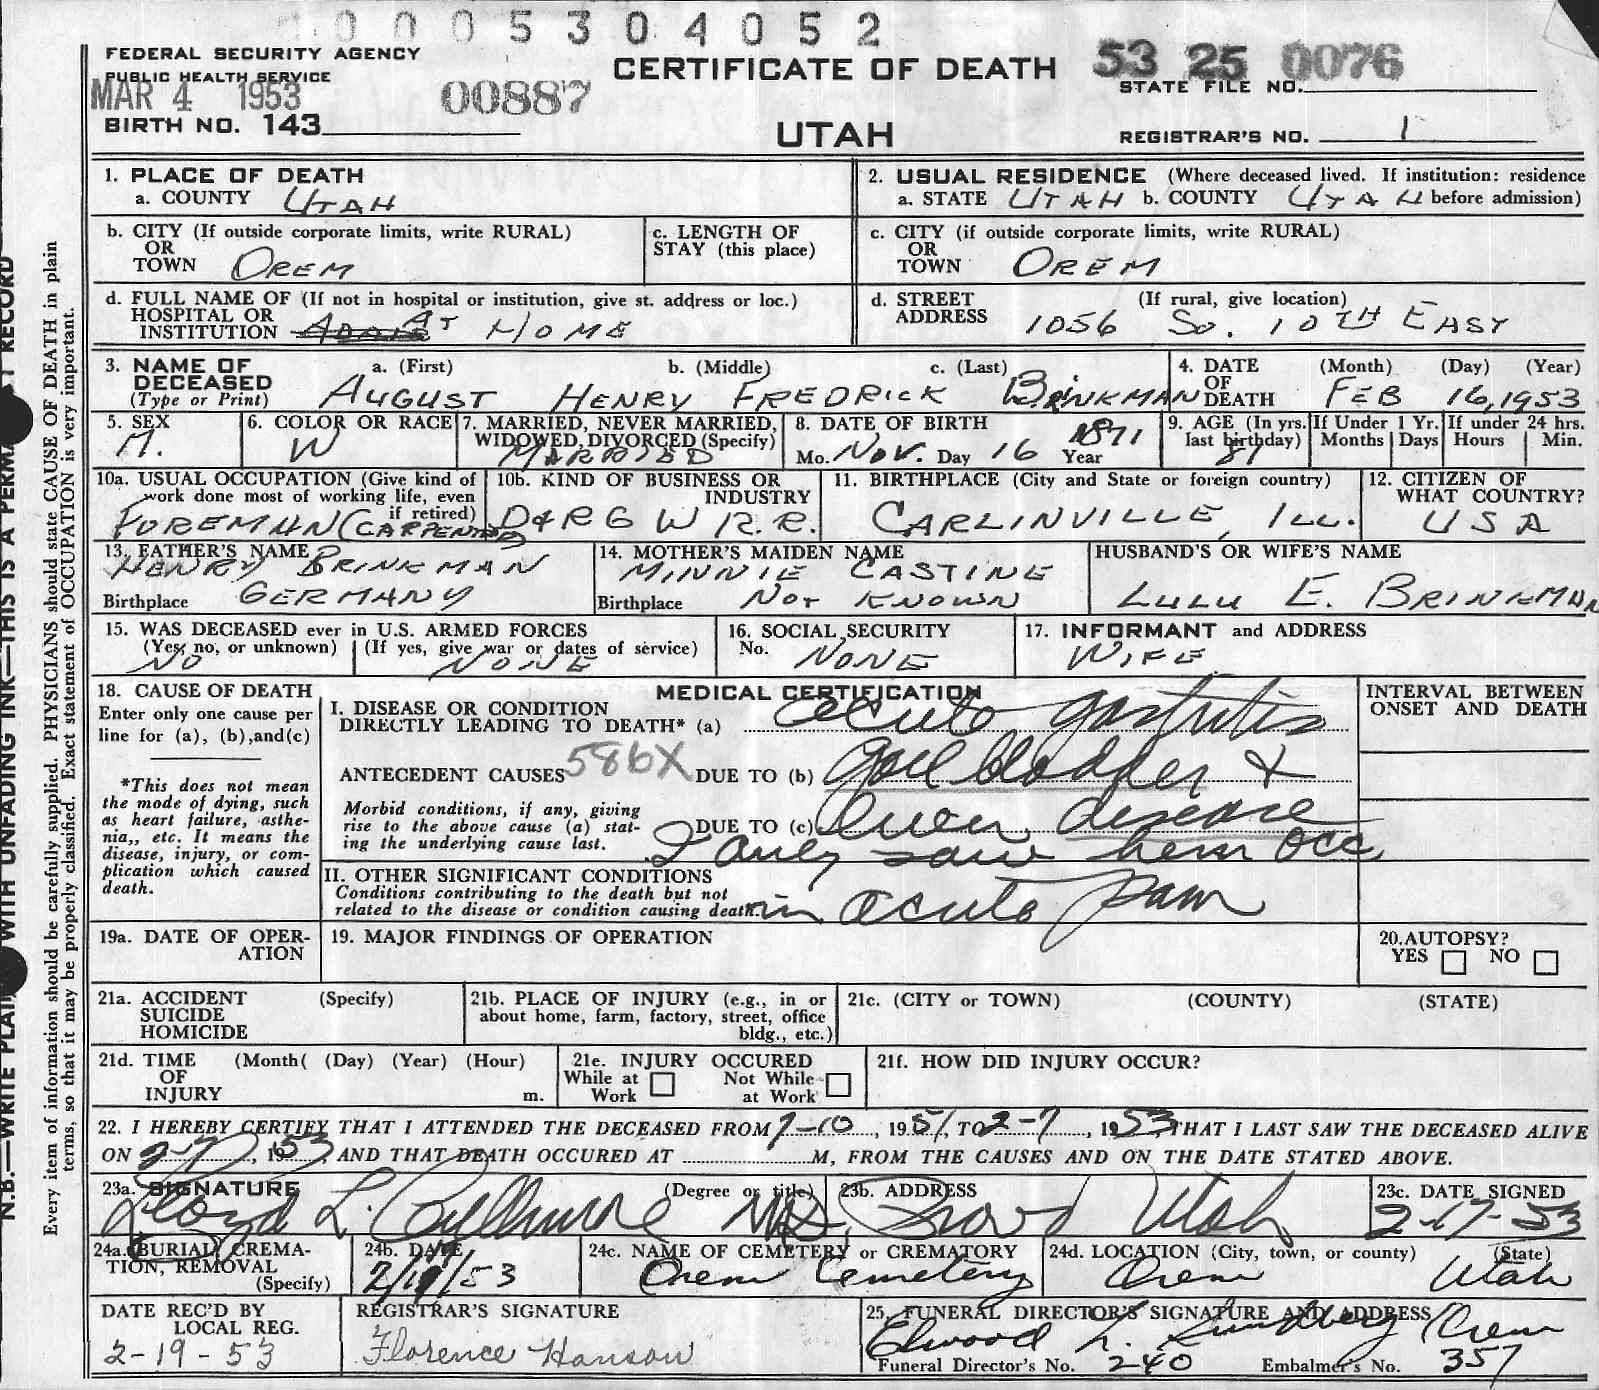 0005304052
FEDERAL SECURITY AGENCY
PUBLIC HEALTH SERVICE
MAR 4 1953
00887
CERTIFICATE OF DEATH
53 25 0076
STATE FILE NO.
BIRTH NO. 143
UTAH
REGISTRAR'S NO. 1
1. PLACE OF DEATH
a. COUNTY UTAH
2. USUAL RESIDENCE (Where deceased lived. If institution: residence
a. STATE UTAH b. COUNTY UTAH before admission)
b. CITY (If outside corporate limits, write RURAL)
OR
TOWN OREM
c. LENGTH OF
STAY (this place)
c. CITY (if outside corporate limits, write RURAL)
OR
TOWN OREM
d. FULL NAME OF (If not in hospital or institution, give st. address or loc.)
HOSPITAL OR
INSTITUTION AT HOME
d. STREET (If rural, give location)
ADDRESS 1056 So. 10TH EAST
3. NAME OF DECEASED
(Type or Print)
a. (First) b. (Middle) c. (Last)
AUGUST HENRY FREDRICK BRINKMAN
4. DATE OF DEATH (Month) (Day) (Year)
FEB 16, 1953
5. SEX
M.
6. COLOR OR RACE
W
7. MARRIED, NEVER MARRIED,
WIDOWED, DIVORCED (Specify)
MARRIED
8. DATE OF BIRTH
Mo. Nov. Day 16 Year 1871
9. AGE (In yrs. last birthday)
81
If Under 1 Yr.
Months Days
If under 24 hrs.
Hours Min.
10a. USUAL OCCUPATION (Give kind of
work done most of working life, even
if retired)
FOREMAN (CARPENTER)
10b. KIND OF BUSINESS OR
INDUSTRY
D&RGW R.R.
11. BIRTHPLACE (City and State or foreign country)
CARLINVILLE, ILL.
12. CITIZEN OF
WHAT COUNTRY?
USA
13. FATHER'S NAME
HENRY BRINKMAN
Birthplace GERMANY
14. MOTHER'S MAIDEN NAME
MINNIE CASTINE
Birthplace NOT KNOWN
HUSBAND'S OR WIFE'S NAME
LULU E. BRINKMAN
15. WAS DECEASED ever in U.S. ARMED FORCES
(Yes, no, or unknown) (If yes, give war or dates of service)
NO NONE
16. SOCIAL SECURITY
No. NONE
17. INFORMANT and ADDRESS
WIFE
18. CAUSE OF DEATH
Enter only one cause per
line for (a), (b),and(c)
*This does not mean
the mode of dying, such
as heart failure, asthe-
nia,, etc. It means the
disease, injury, or com-
plication which caused
death.
MEDICAL CERTIFICATION
I. DISEASE OR CONDITION
DIRECTLY LEADING TO DEATH* (a) acute gastritis
ANTECEDENT CAUSES 586X DUE TO (b) Gall bladder &
Morbid conditions, if any, giving
rise to the above cause (a) stat-
ing the underlying cause last.
DUE TO (c) liver disease
I only saw him occ.
II. OTHER SIGNIFICANT CONDITIONS
Conditions contributing to the death but not
related to the disease or condition causing death. in acute pain
INTERVAL BETWEEN
ONSET AND DEATH
19a. DATE OF OPER-
ATION
19. MAJOR FINDINGS OF OPERATION
20.AUTOPSY?
YES NO
21a. ACCIDENT (Specify)
SUICIDE
HOMICIDE
21b. PLACE OF INJURY (e.g., in or
about home, farm, factory, street, office
bldg., etc.)
21c. (CITY or TOWN) (COUNTY) (STATE)
21d. TIME (Month( (Day) (Year) (Hour)
OF
INJURY m.
21e. INJURY OCCURED
While at Work Not While at Work
21f. HOW DID INJURY OCCUR?
22. I HEREBY CERTIFY THAT I ATTENDED THE DECEASED FROM 7-10, 1951, TO 2-7, 1953, THAT I LAST SAW THE DECEASED ALIVE
ON 2-7, 1953, AND THAT DEATH OCCURED AT M, FROM THE CAUSES AND ON THE DATE STATED ABOVE.
23a. SIGNATURE (Degree or title)
Lloyd L. Cullimore MD
23b. ADDRESS
Provo Utah
23c. DATE SIGNED
2-17-53
24a. BURIAL, CREMA-
TION, REMOVAL
(Specify)
24b. DATE
24c. NAME OF CEMETERY or CREMATORY
Orem Cemetery
24d. LOCATION (City, town, or county) (State)
Orem Utah
DATE REC'D BY
LOCAL REG.
2-19-53
REGISTRAR'S SIGNATURE
Florence Hanson
25. FUNERAL DIRECTOR'S SIGNATURE AND ADDRESS
Elwood L. Sundberg Orem
Funeral Director's No. 240 Embalmer's No. 357
N.B.—WRITE PLAIN WITH UNFADING INK—THIS IS A PERMA T RECORD
Every item of information should be carefully supplied. PHYSICIANS should state CAUSE OF DEATH in plain
terms, so that it may be properly classified. Exact statement of OCCUPATION is very important.